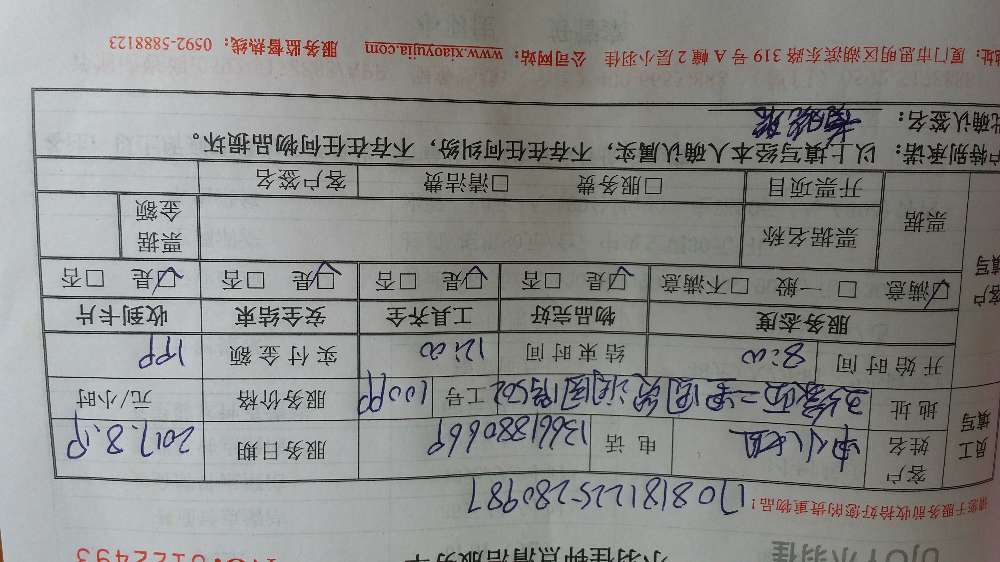 UJOY小羽佳
小羽佳钟点清洁服务单
0122493
请您于服务前收拾好您的贵重物品！
170818122528098?
员工填写
客户姓名
电话
13661880669
服务日期
2017.8.19
地址
工号
10099
服务价格
元/小时
开始时间
8:00
结束时间
12:00
实付金额
199
客户填写
服务态度
物品完好
工具齐全
安全结束
收到卡片
☑满意 □一般 □不满意
☑是 □否
☑是 □否
☑是 □否
☑是 □否
票据
票据名称
票据金额
开票项目
□服务费 □清洁费
客户签名
户特别承诺：以上填写经本人确认属实，不存在任何纠纷，不存在任何物品损坏。
此确认签名：
地址：厦门市思明区湖滨东路 319 号 A 幢 2 层小羽佳 公司网站：www.xiaoyujia.com 服务监督热线：0592-5888123